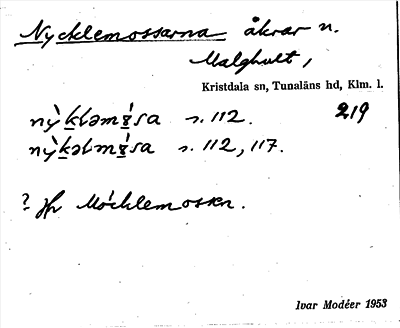 Nycklemossarna åkrar n.
Malghult,
Kristdala sn, Tunaläns hd, Klm. l.
s. 112. 219
s. 112, 117.
? Jfr Möcklemossen.
Ivar Modéer 1953